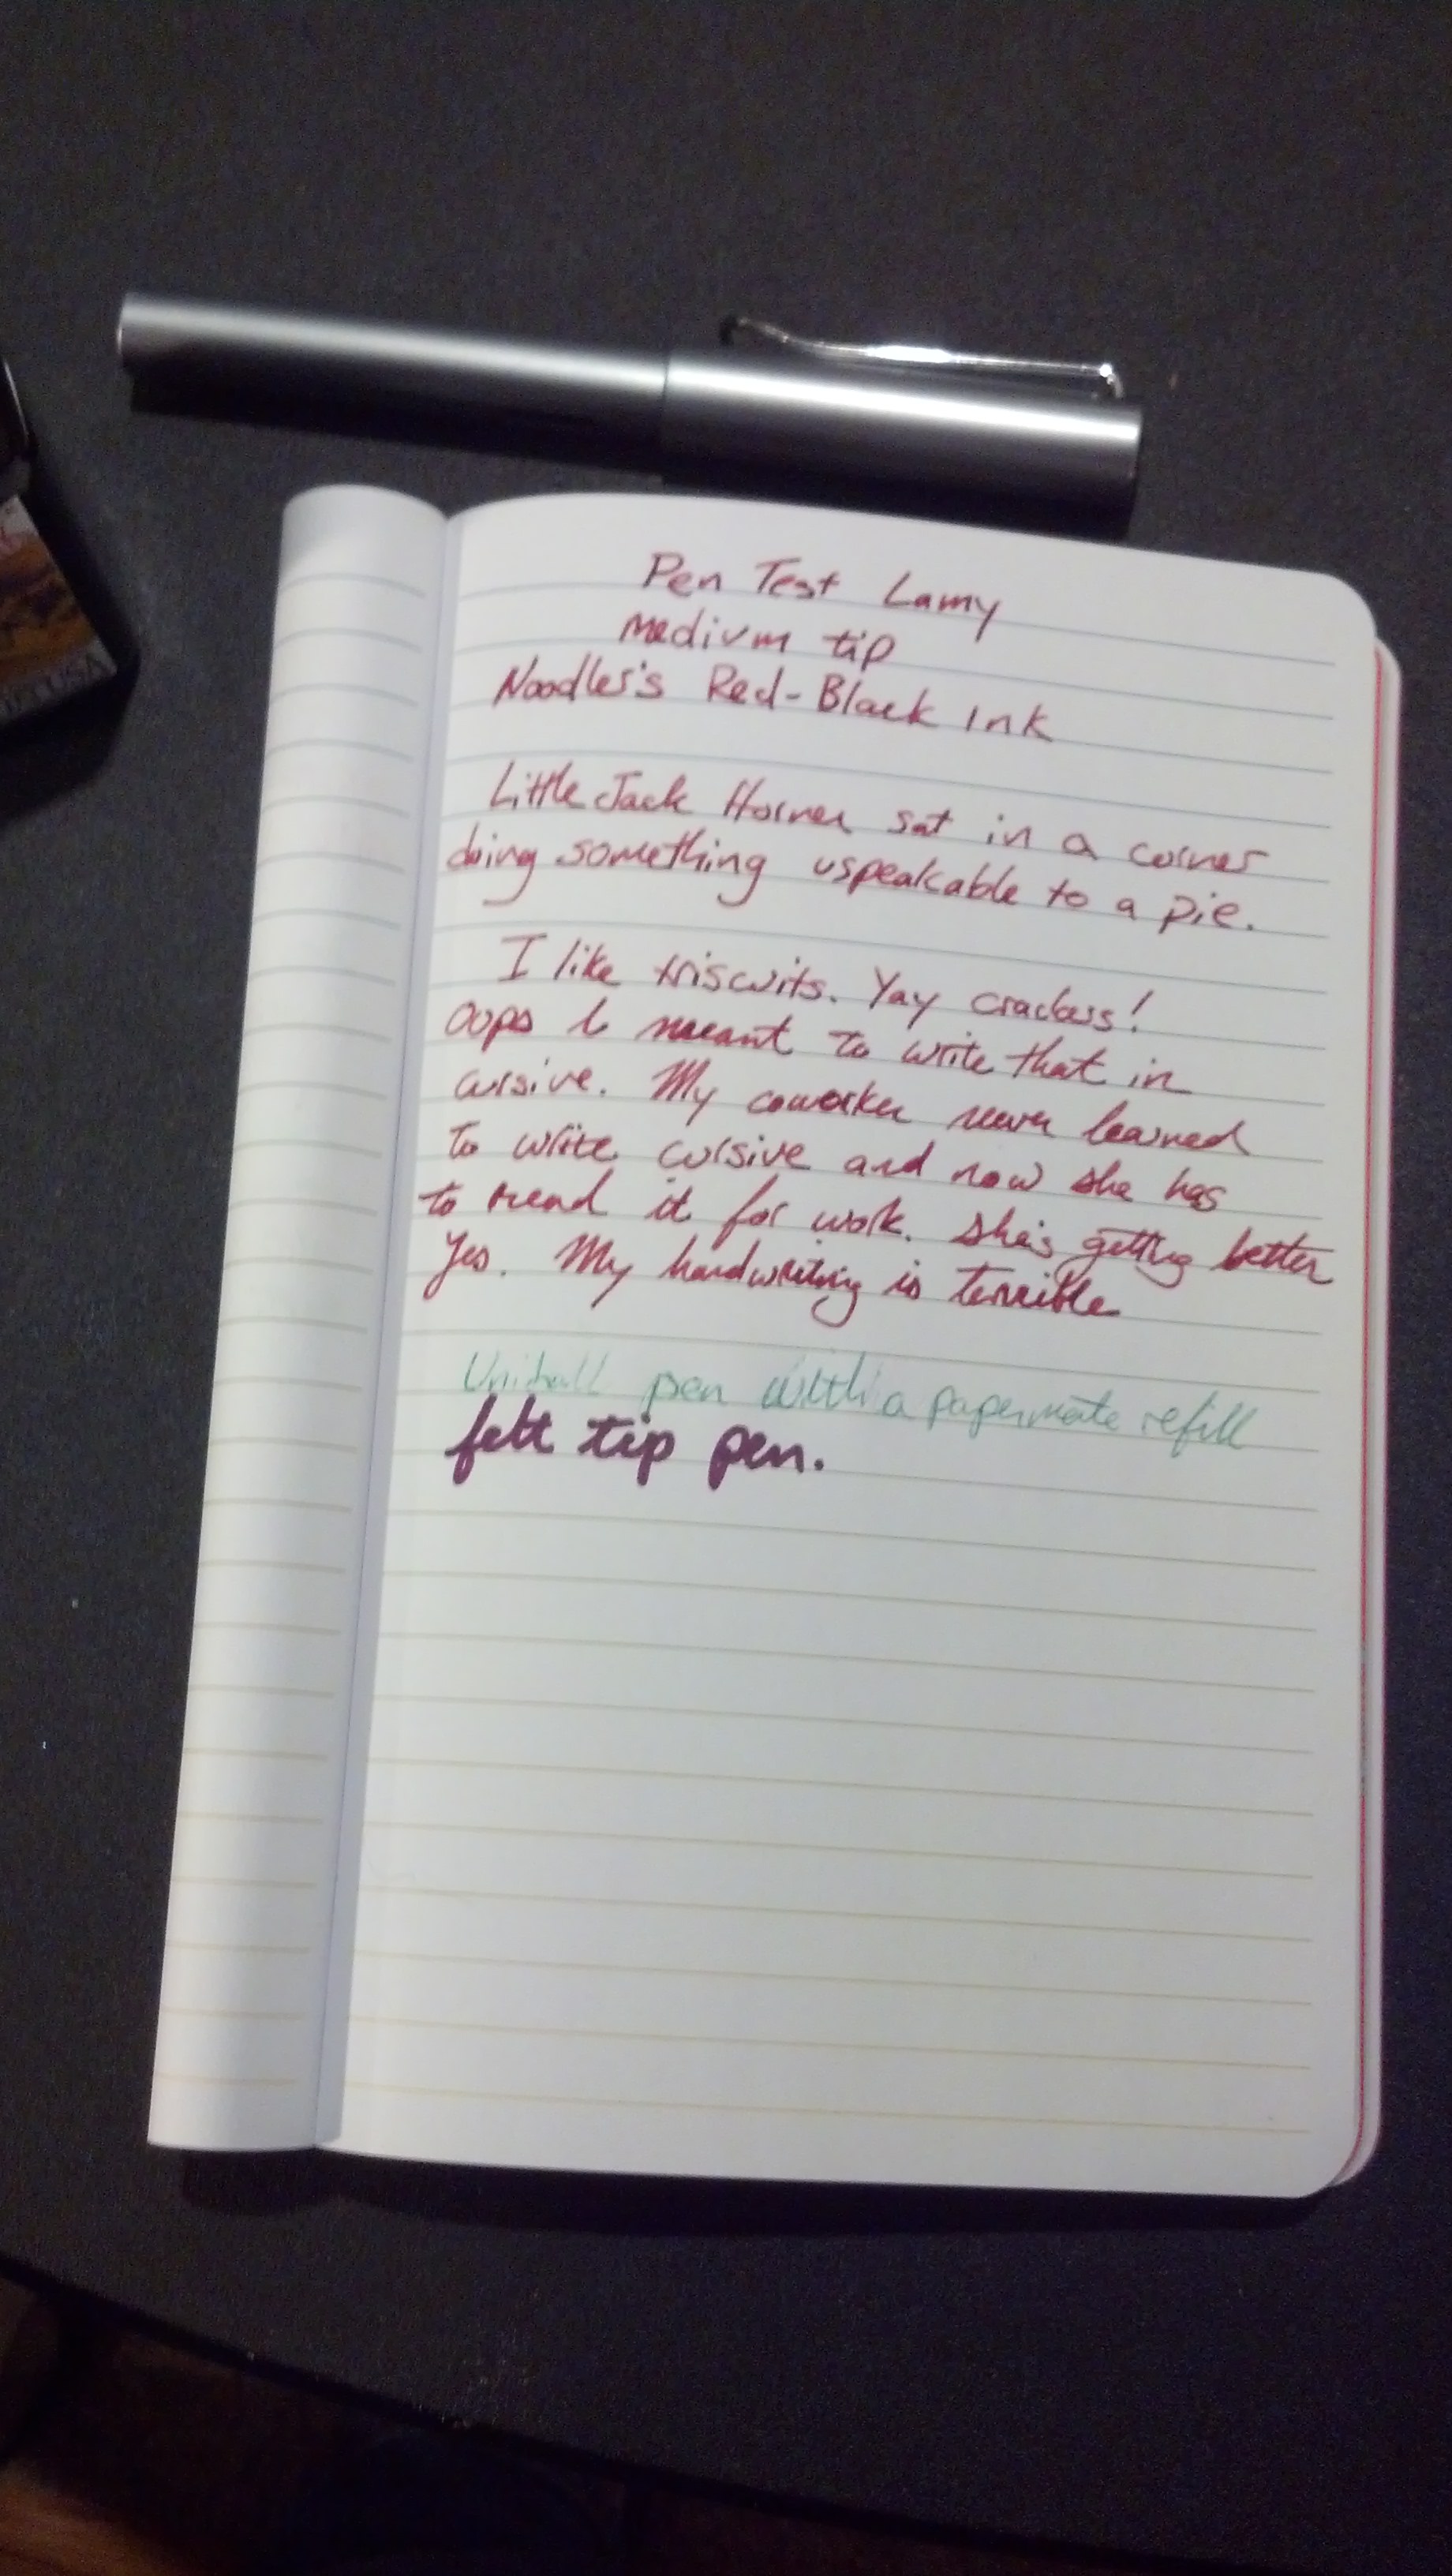 Pen Test Lamy
medium tip
Noodler's Red-Black Ink
Little Jack Horner sat in a corner
doing something uspeakable to a pie.
I like triscuits. Yay crackers!
Oops I meant to write that in
cursive. My coworker never learned
to write cursive and now she has
to read it for work. She's getting better
Yes. My handwriting is terrible
Uniball pen with a papermate refill
felt tip pen.
USA